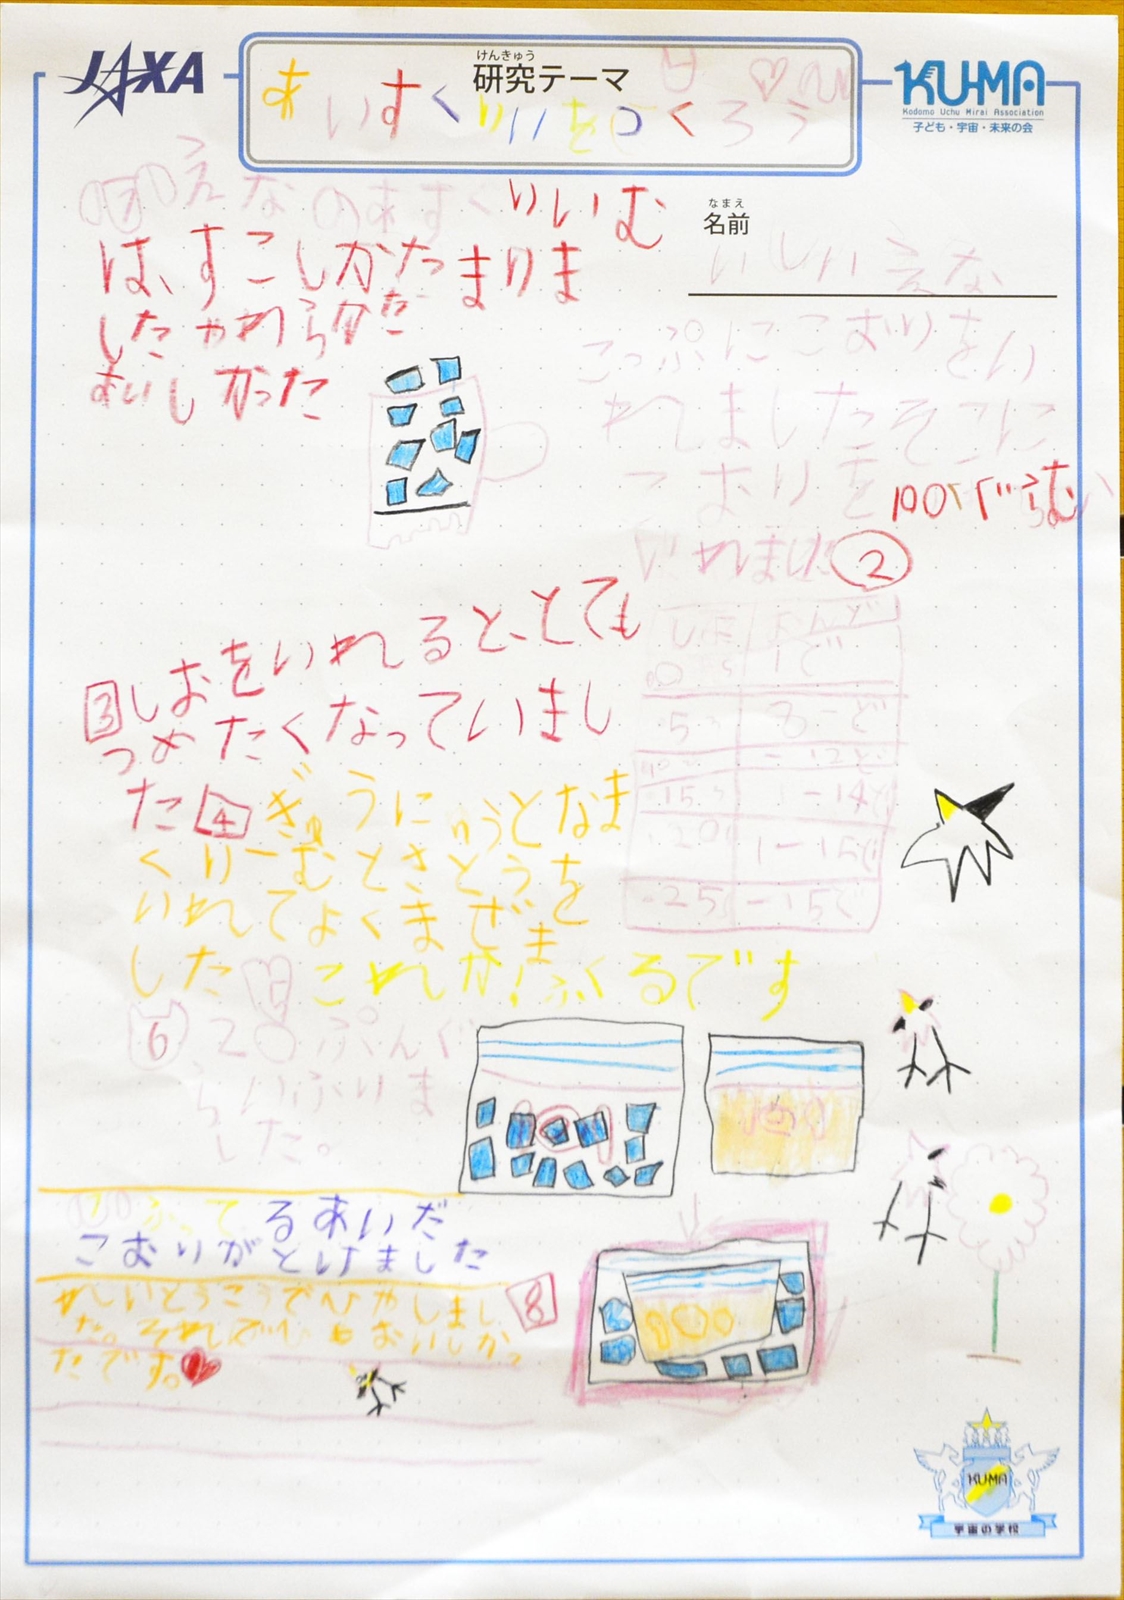 JAXA
けんきゅう
研究テーマ
あいすくりいむをつくろう
KU-MA
Kodomo Uchu Mirai Association
子ども・宇宙・未来の会
なまえ
名前
いしいえな
えなのあすくりいむ
は、すこしかたまりま
したやわらかだ
おいしかった
こっぷにこおりをい
れましたそこに
こおりを100ぐらむい
れました
2
しお おんど
0 1ど
5 8-ど
10 -12ど
15 -14ど
20 -15ど
25 -15ど
3 しおをいれると、とても
つめたくなっていまし
た 4 ぎゅうにゅうとなま
くりーむとさとうを
いれてよくまぜま
した これがふくろです
6 20ぷんぐ
らいふりま
した。
ふってるあいだ
こおりがとけました
8
れいとうこでひやしまし
た。それでもおいしかっ
たです。
100
KUMA
宇宙の学校